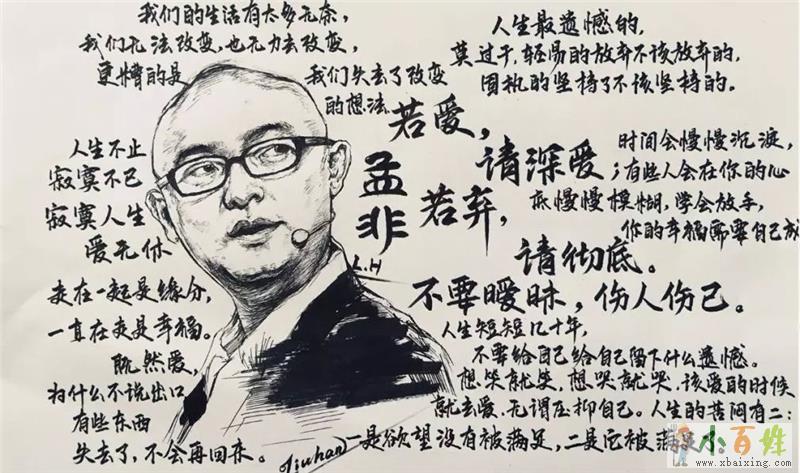 我们的生活有太多无奈,
我们无法改变,也无力去改变,
更糟的是
我们失去了改变
的想法.
人生最遗憾的,
莫过于,轻易的放弃不该放弃的,
固执的坚持了不该坚持的。
人生不止
寂寞不已
寂寞人生
爱无休
走在一起是缘分,
一直在走是幸福。
既然爱,
为什么不说出口
有些东西
失去了,不会再回来。
孟非
L.H
若爱,
请深爱;
若弃,
请彻底。
不要暧昧,伤人伤己。
时间会慢慢沉淀,
有些人会在你的心
底慢慢模糊,学会放手,
你的幸福需要自己成
人生短短几十年,
不要给自己给自己留下什么遗憾。
想笑就笑,想哭就哭,该爱的时候
就去爱,无谓压抑自己。人生的苦闷有二:
一是欲望没有被满足,二是它被满
liuhan
小百姓
www.xbaixing.com